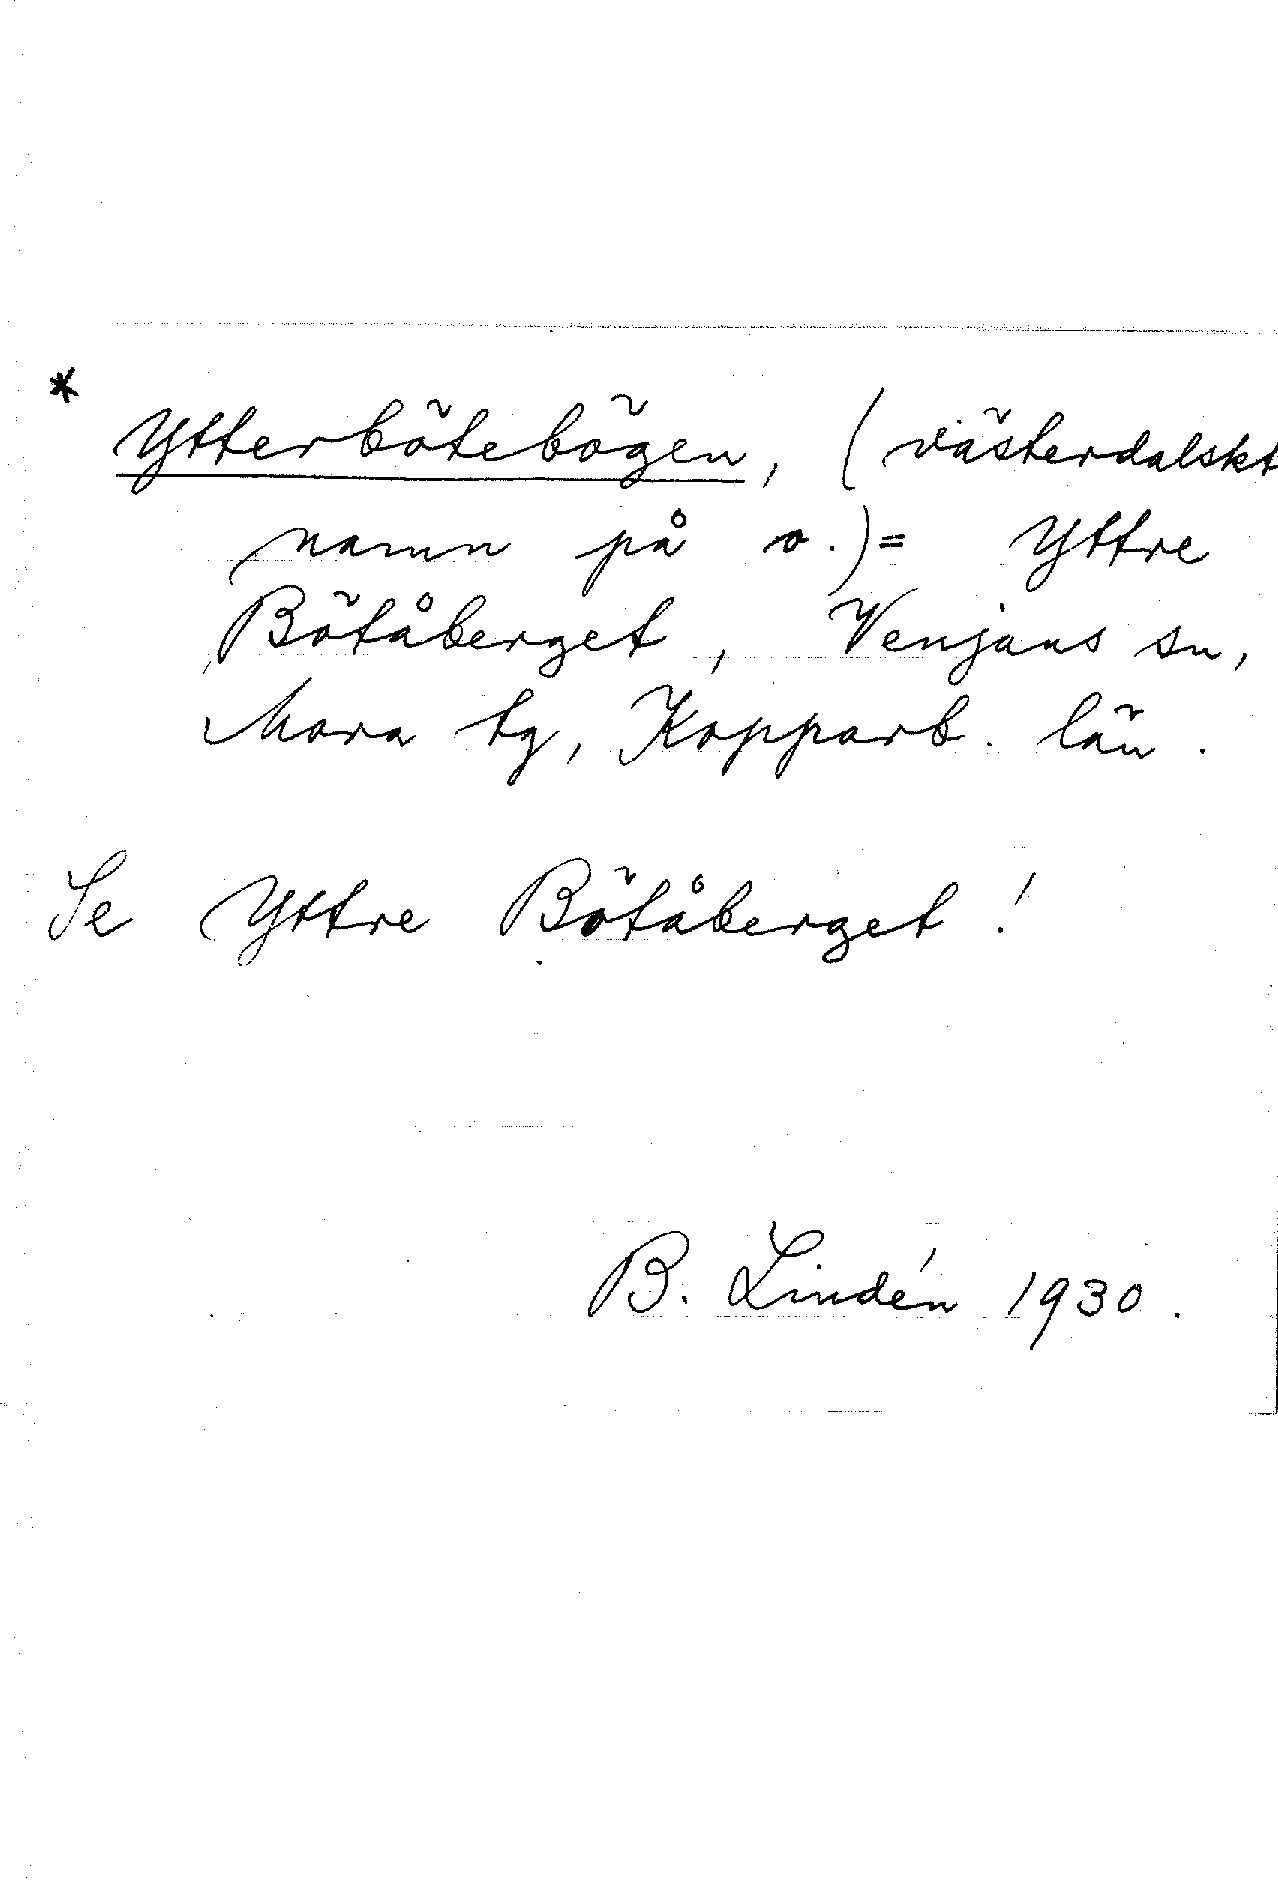 *
Ytterbötebögen, (västerdalskt
namn på o.) = Yttre
Bötåberget, Venjans sn,
Mora tg, Kopparb. län.
Se Yttre Bötåberget!
B. Lindén 1930.